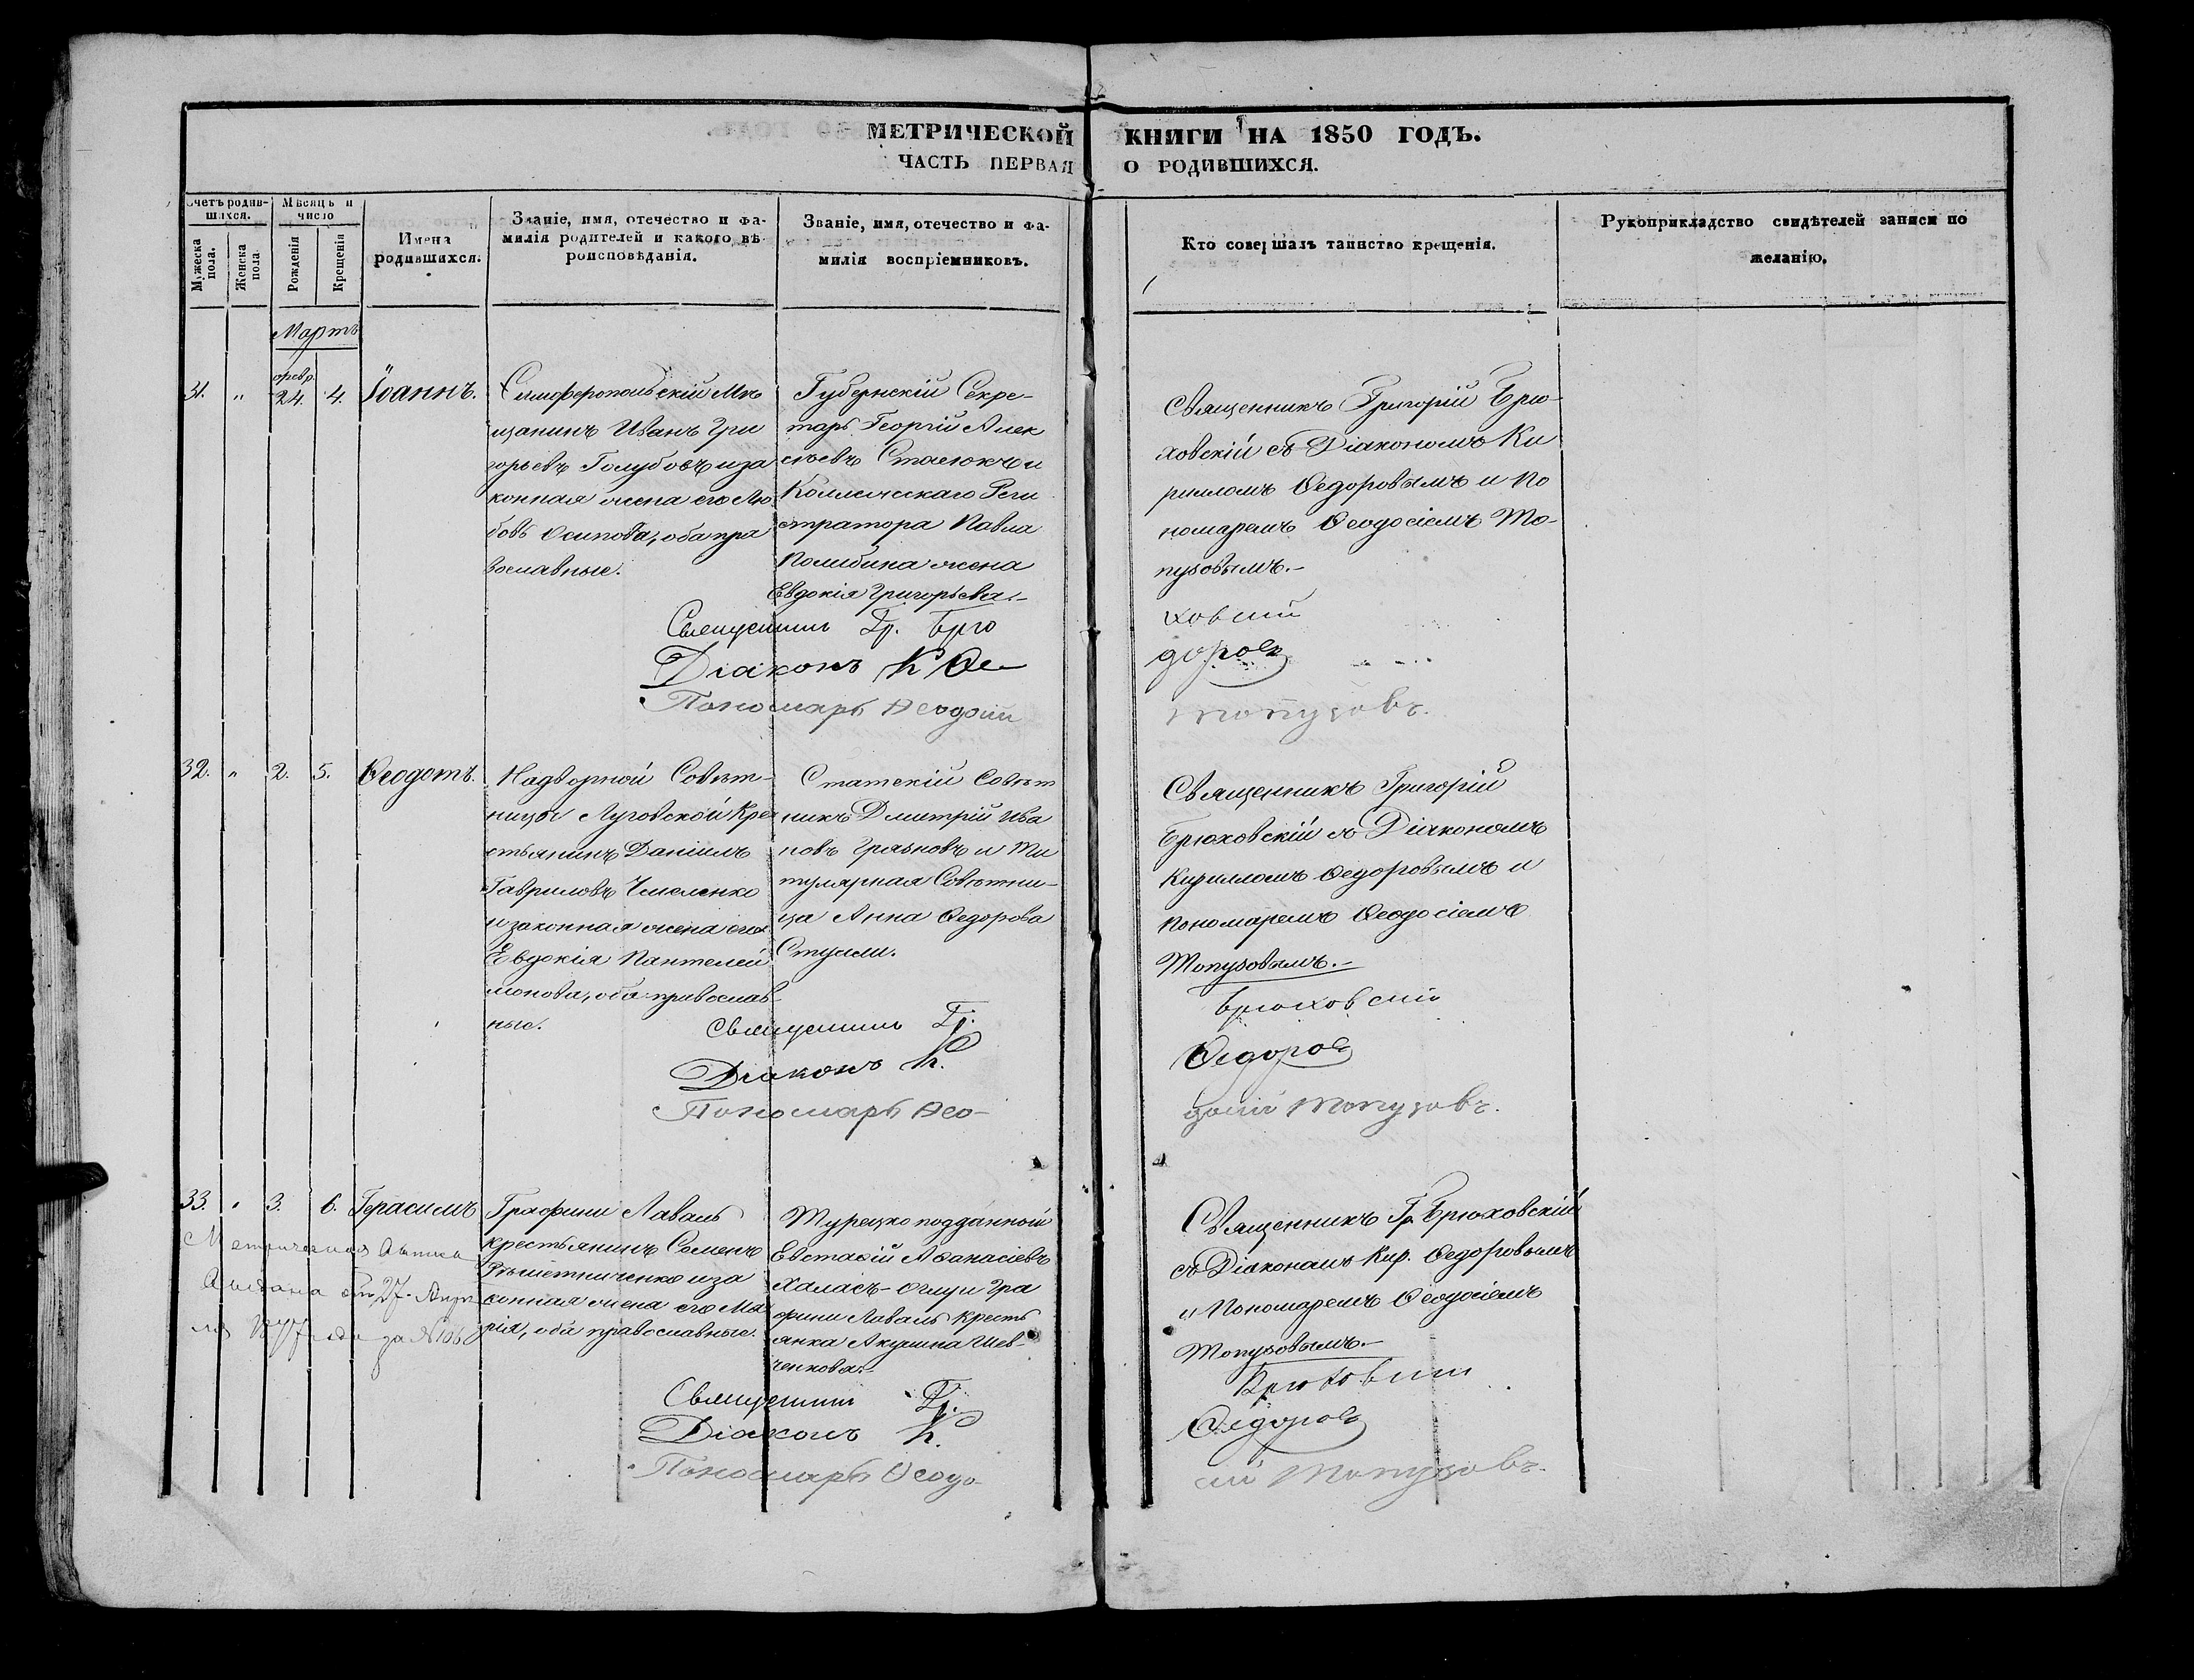 МЕТРИЧЕСКОЙ КНИГИ НА 1850 ГОДЪ.
ЧАСТЬ ПЕРВАЯ О РОДИВШИХСЯ.
Счетъ родив-
шихся.
Мужеска
пола.
Женска
пола
Мѣсяцъ и
число
Рожденія
Крещенія
Имена
родившихся.
Званіе, имя, отечество и фа-
милія родителей и какого вѣ-
роисповѣданія.
Званіе, имя, отечество и фа-
милія воспріемниковъ.
Кто совершалъ таинство крещенія.
Рукоприкладство свидѣтелей записи по
желанію.
Мартъ
31. " февр. 24. 4. Іоаннъ.
Симферопольскій Мѣ
щанинъ Иванъ Гри
горьевъ Голубовъ и за
конная жена его Лю
бовь Осипова, оба пра
вославные.
Губернскій Секре-
тарь Георгій Алек
сѣевъ и
Коллежскаго Реги
стратора Павла
Полибина жена
Евдокія Григорьева.-
Священникъ Григорій Брю-
ховскій съ Діакономъ Ки
рилломъ Ѳедоровымъ и По
номаремъ Ѳеодосіемъ То-
пузовымъ.-
Священникъ Гр. Брюховскій
Діаконъ К Ѳедоровъ
Пономарь Ѳеодосій Топузовъ.
32. " 2. 5. Ѳеодотъ.
Надворной Совѣт-
ницы Луговской Кре
стьянинъ Даніилъ
Гавриловъ Чмеленко
и законная жена его
Евдокія Пантелей
монова, оба православ-
ные.
Статскій Совѣт
никъ Дмитрій Ива
новъ Граковъ и Ти
тулярная Совѣтни-
ца Анна Ѳедорова
Священникъ Григорій
Брюховскій съ Діакономъ
Кирилломъ Ѳедоровымъ и
Пономаремъ Ѳеодосіемъ
Топузовымъ.-
Священникъ Гр. Брюховскій
Діаконъ К. Ѳедоровъ
Пономарь Ѳео-досій Топузовъ.
33. " 3. 6. Герасимъ
Графини Лаваль
крестьянинъ Семенъ
Рѣшетниченко и за
конная жена его Ма
рія, оба православные.
Турецко подданной
Евстафій Аѳанасіевъ
Халасъ-оглу и Гра
фини Лаваль Кресть
янка Акулина Шев-
ченкова.-
Священникъ Гр. Брюховскій
съ Діакономъ Кир. Ѳедоровымъ
и Пономаремъ Ѳеодосіемъ
Топузовымъ.-
Метрическая
27. Апрѣ
ля за №
Священникъ Гр. Брюховскій
Діаконъ К. Ѳедоровъ
Пономарь Ѳеодосій Топузовъ.